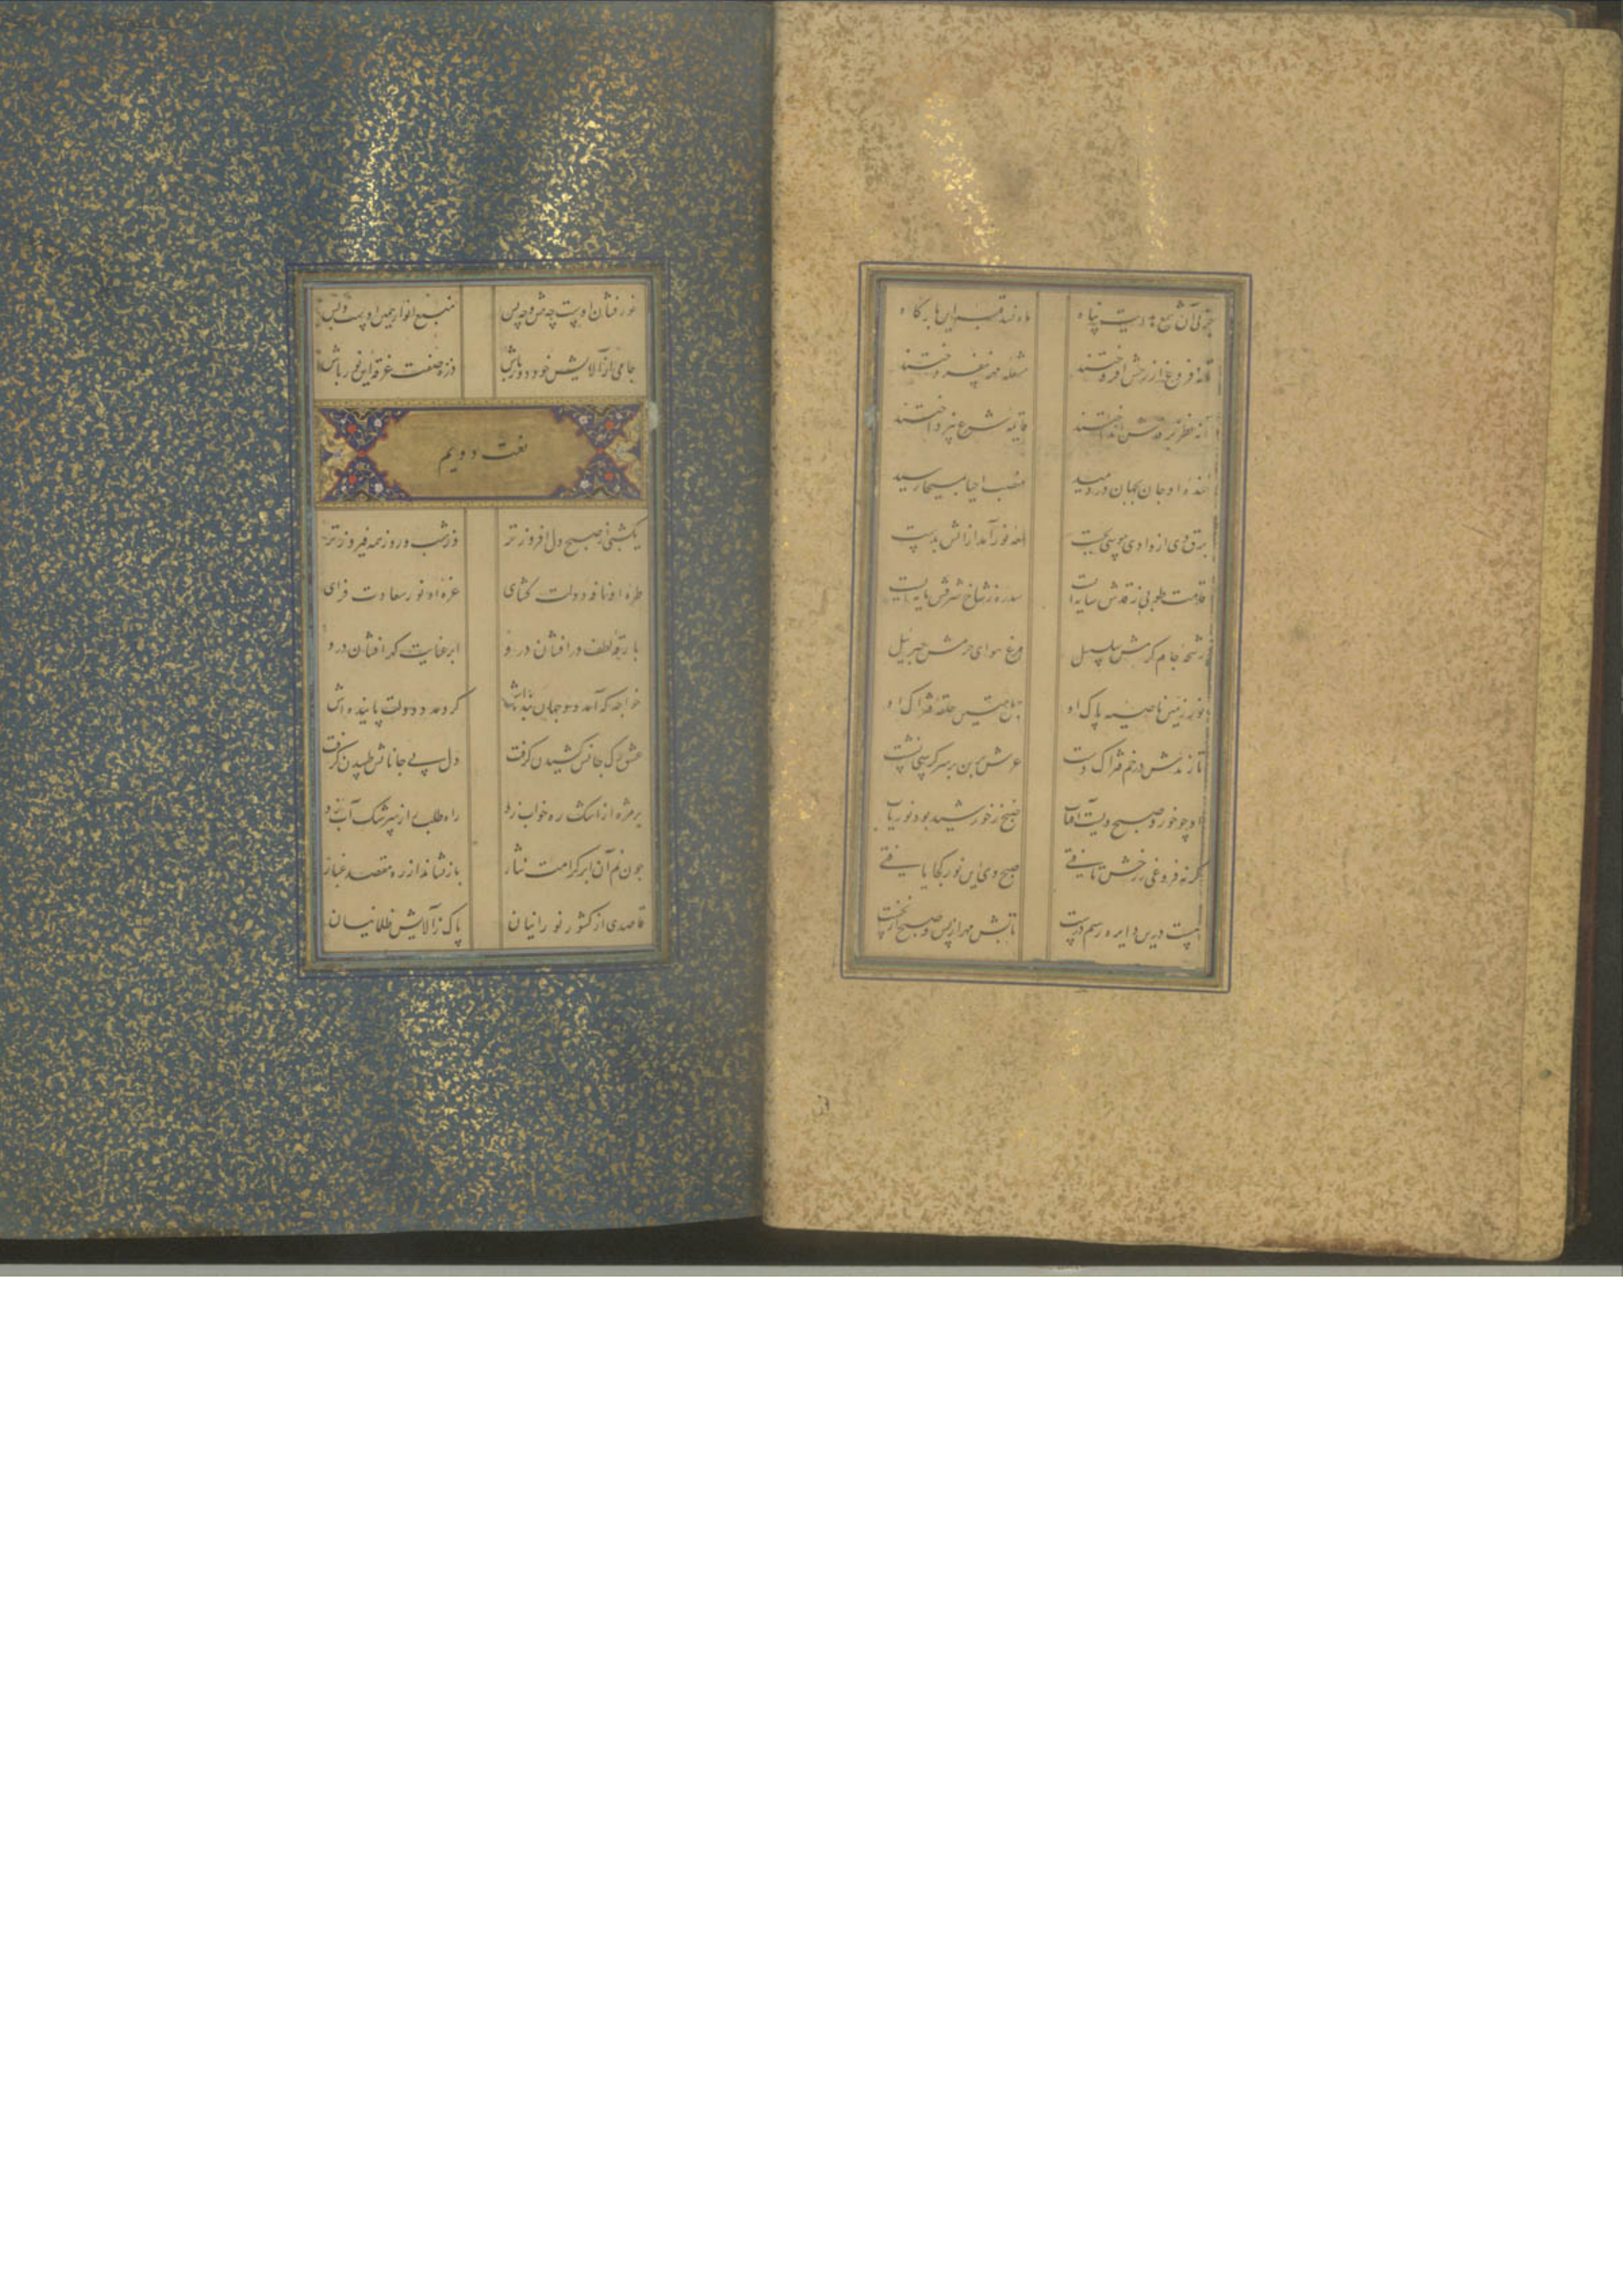 آن شمع هدایت پناه این بارگاه
تا نه فروغ از رخش افروختند مشعله مه نیفروختند
تا نه نظر بر انداختند شرع نپرداختند
خنده او جان بجهان در دمید منصب احیا بمسیحا رسید
برق وی از وادی موسی بجست لمعه نور آمد از آتش بدست
قامت طوبی ز قدش سایه ایست سدره ز شاخ شرفش پایه ایست
رشحه جام کرمش سلسبیل مرغ هوای حرمش جبرئیل
نور زمین ناصیه پاک او تاج حلقه فتراک او
تا زندش در خم فتراک دست عرش برین بر سر کرسی نشست
او چو خور و صبح آفتاب صبح ز خورشید بود نوریاب
گر نه فروغی ز رخش تافتی صبح وی این نور کجا یافتی
نیست درین دایره رسم درست تابش مهر از پس و صبح از نخست
نور فشان اوست چه پیش و چه پس منبع انوار همین اوست و بس
جامی از آلایش خود دور باش ذره صفت غرقه این نور باش
نعت دویم
یکشبی از صبح دل افروزتر وز شب و روز همه فیروزتر
طره او نافه دولت گشای غره او نور سعادت فزای
بارقه لطف درافشان درو ابر عنایت گهر افشان درو
خواجه که آمد دو جهان بنده اش کرد مدد دولت پاینده اش
عشق رگ جانش کشیدن گرفت دل پی جانانش طپیدن گرفت
بر مژه از اشک ره خواب زد راه طلب از سرشک آب زد
چون نم آن ابر کرامت نثار باز نشاند از ره مقصد غبار
قاصدی از کشور نورانیان پاک ز آلایش ظلمانیان